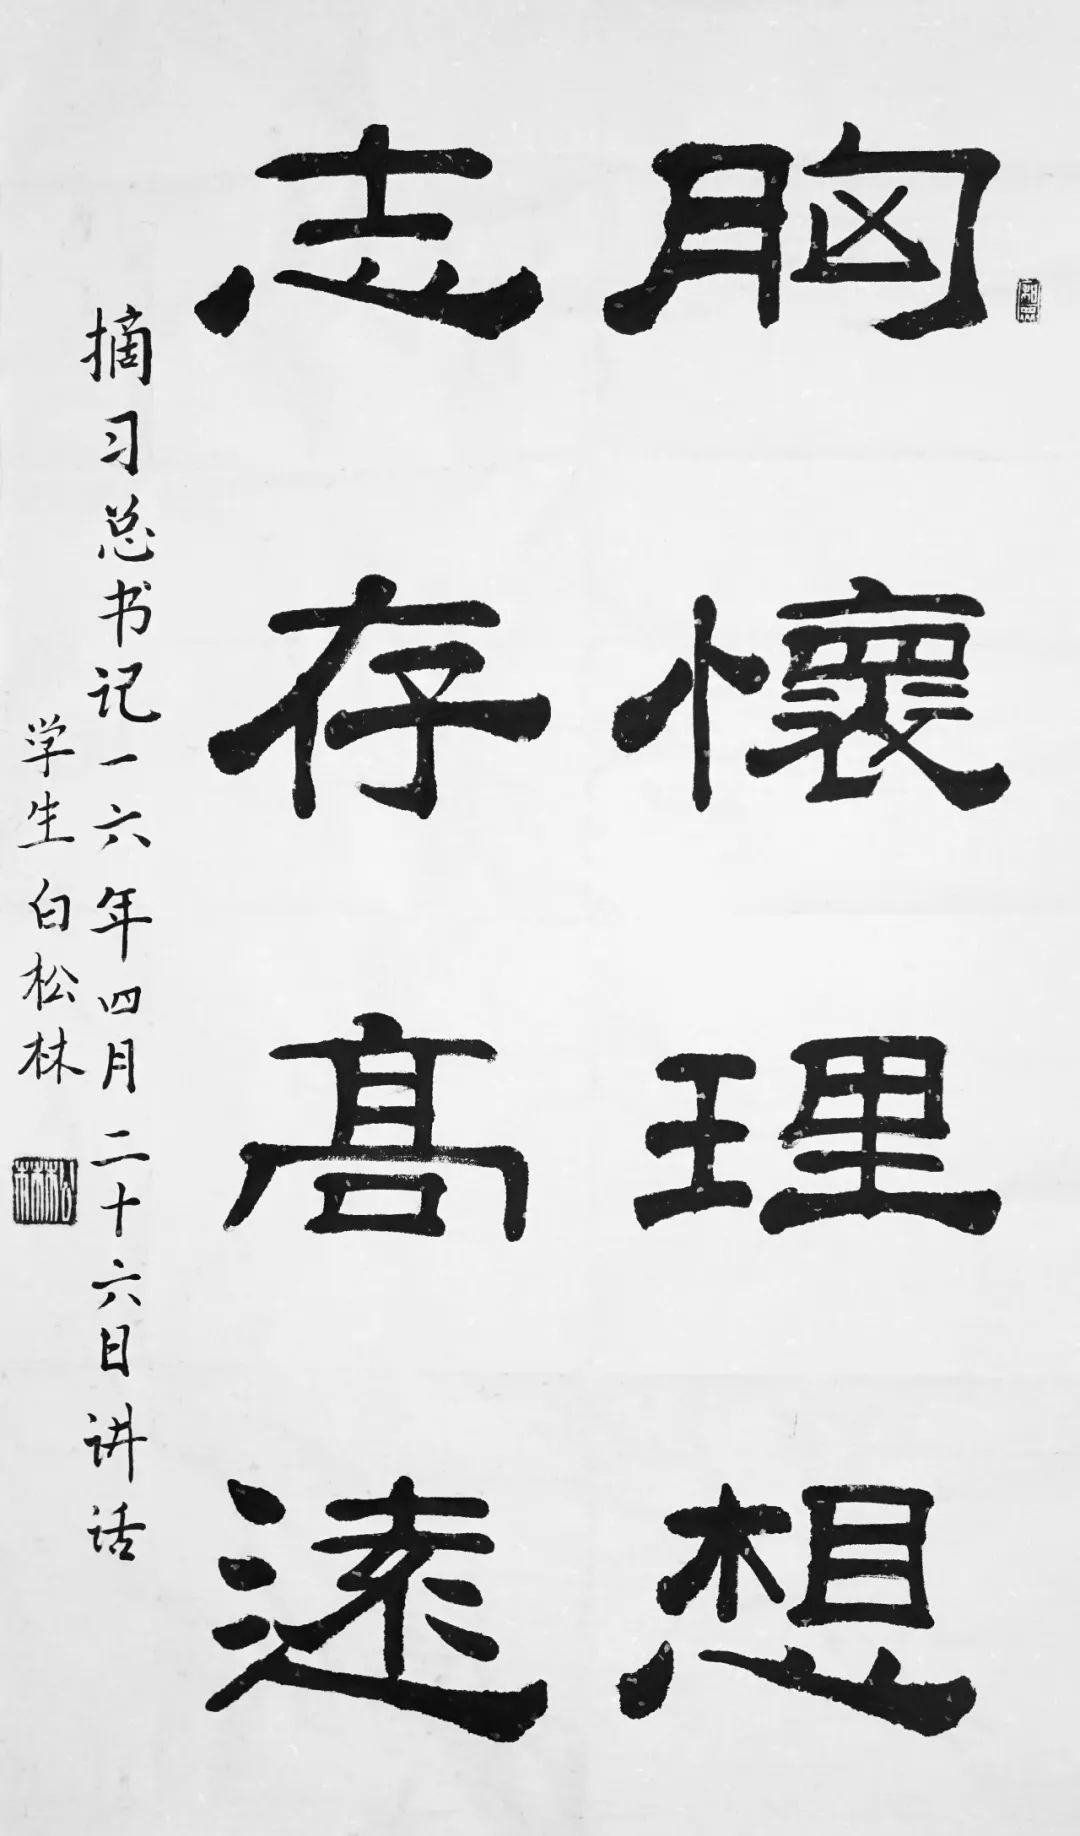 胸懷理想
志存高遠
摘习总书记一六年四月二十六日讲话
学生白松林
松林